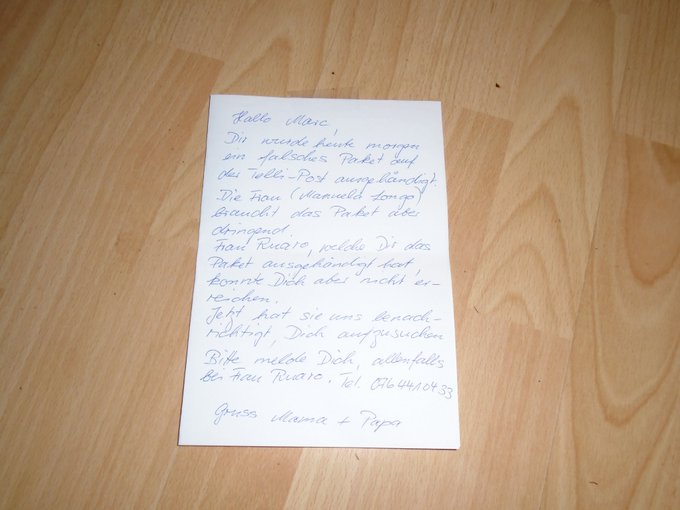 Hallo Marc,
Dir wurde heute morgen
ein falsches Paket auf
der Telli-Post ausgehändigt.
Die Frau (Manuela Longo)
braucht das Paket aber
dringend.
Frau Ruaro, welche Dir das
Paket ausgehändigt hat,
konnte Dich aber nicht er-
reichen.
Jetzt hat sie uns benach-
richtigt, Dich aufzusuchen
Bitte melde Dich, allenfalls
bei Frau Ruaro. Tel. 076 441 04 33
Gruss Mama + Papa